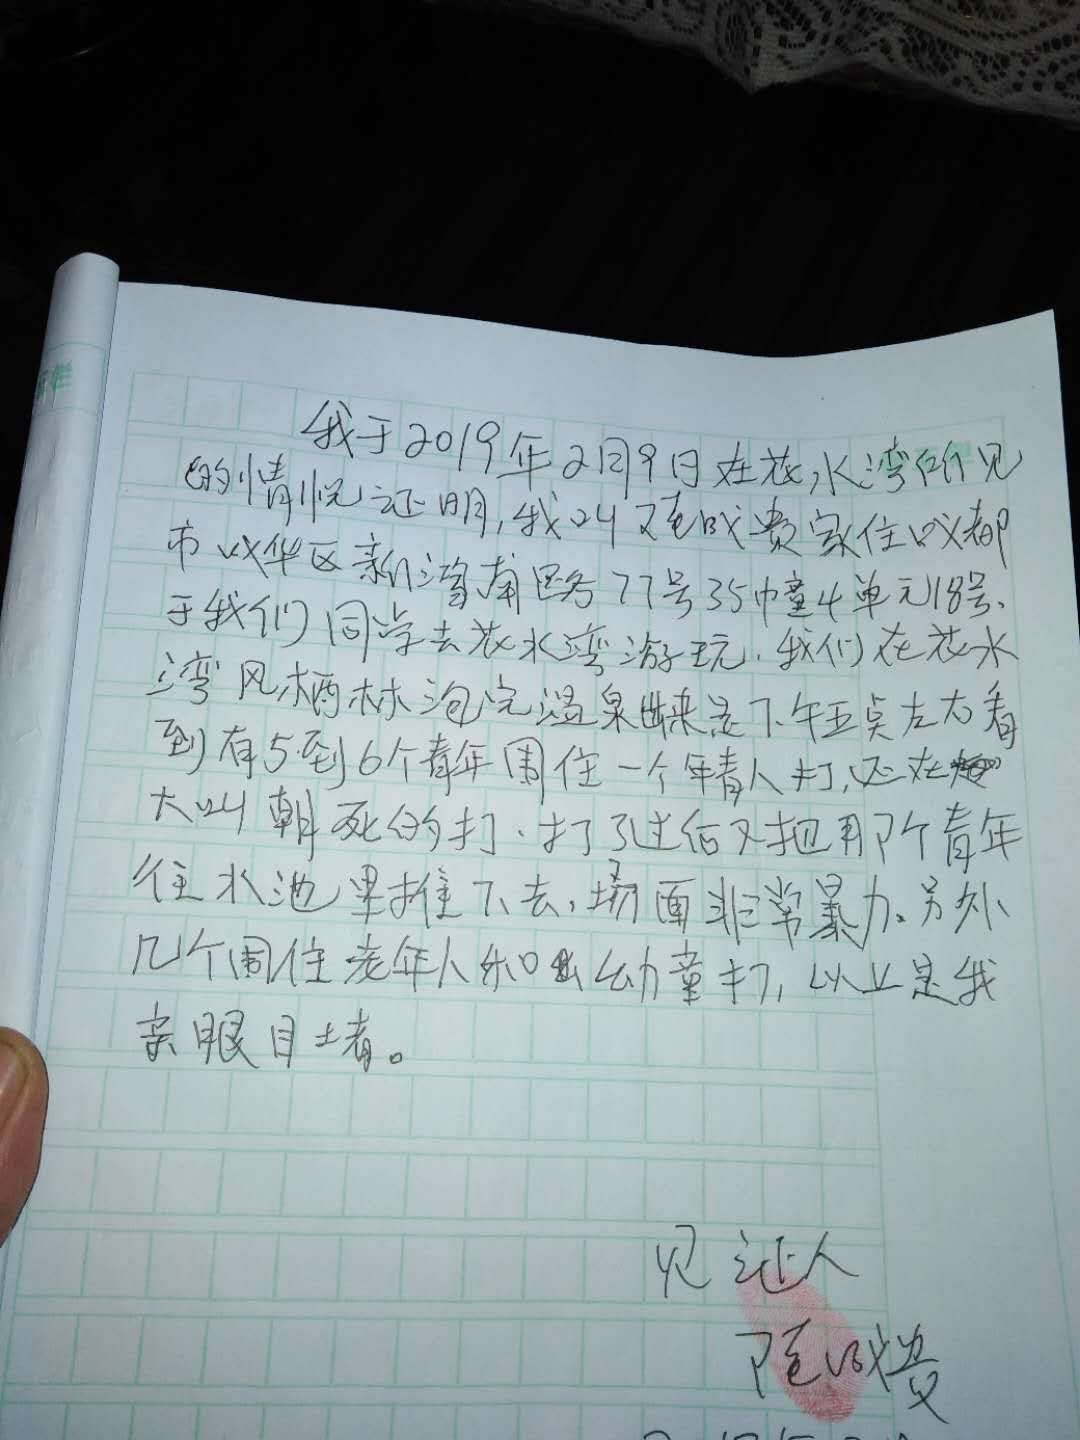 我于2019年2月9日在花水湾所见
的情况证明,我叫陈成贵家住成都
市成华区新鸿南路77号35幢4单元18号、
于我们同学去花水湾游玩.我们在花水
湾风栖林泡完温泉出来是下午五点左右看
到有5到6个青年围住一个年青人打,还在
大叫朝死的打.打了过后又把那个青年
往水池里推下去,场面非常暴力。另外
几个围住老年人和幼童打,以上是我
亲眼目堵。
见证人
陈成贵